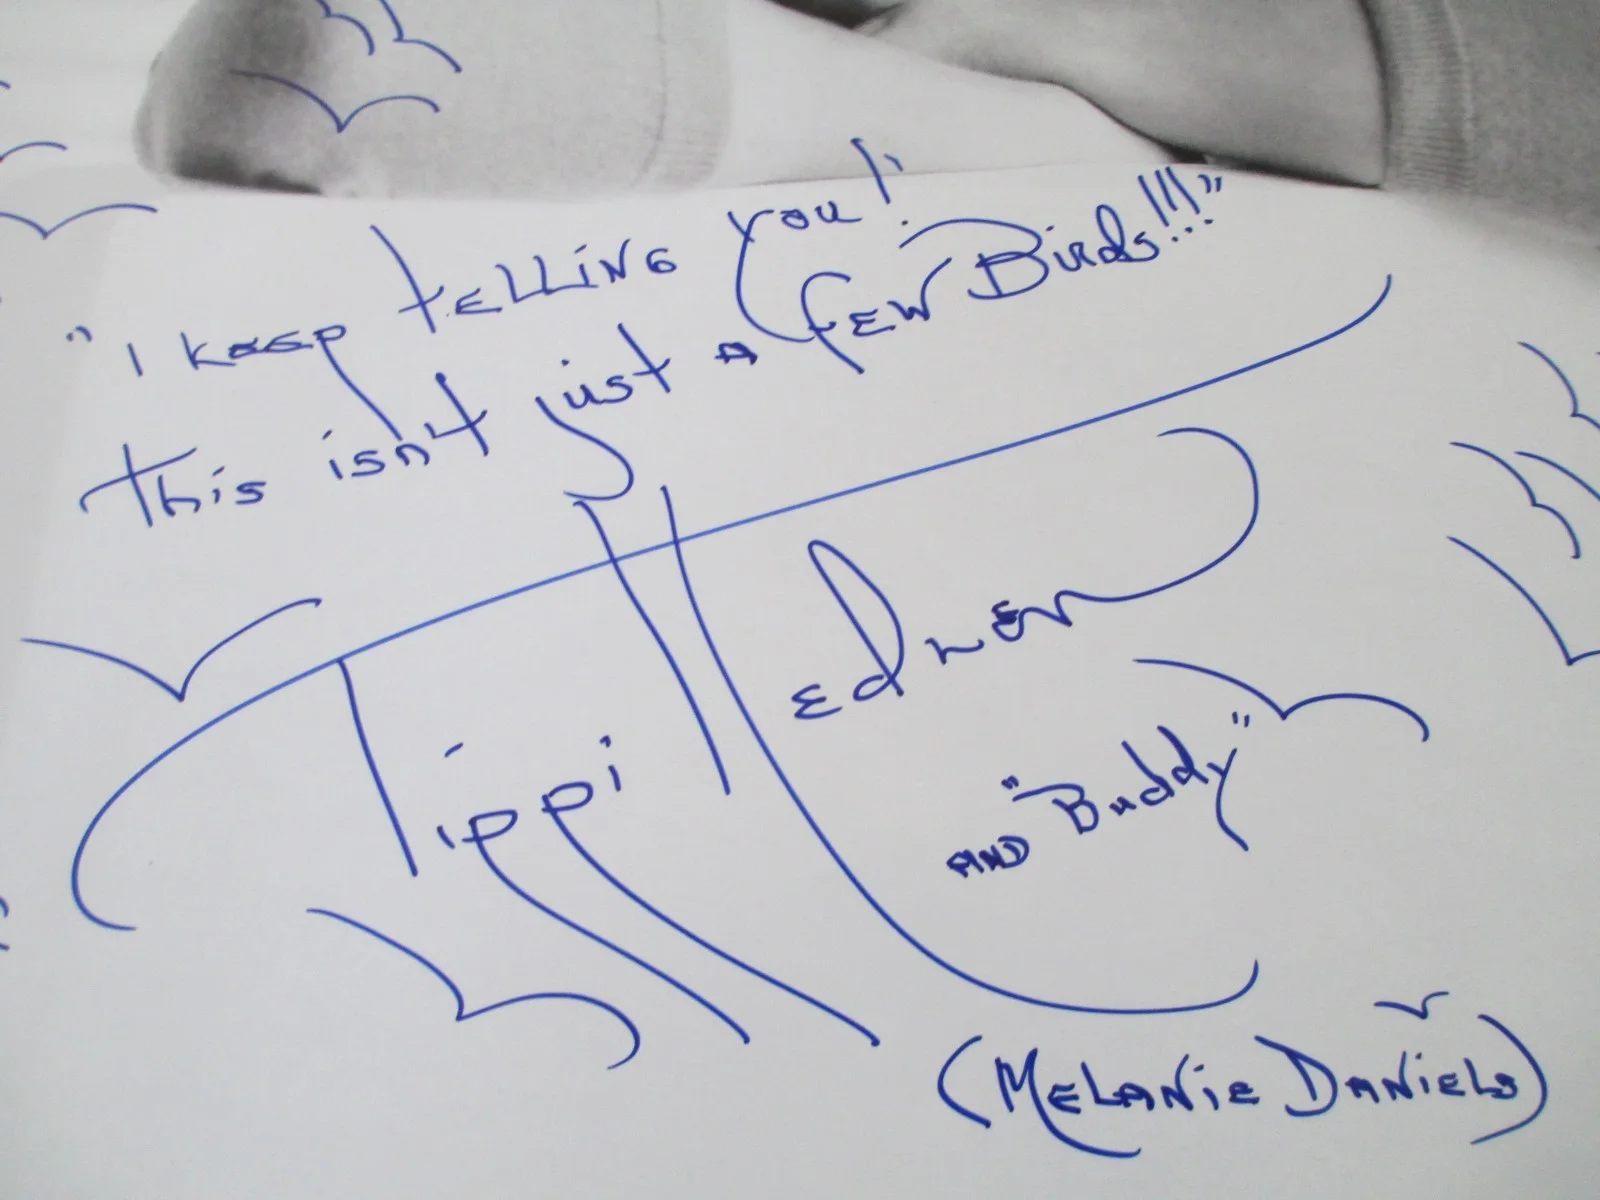 "I keep telling you!
This isn't just a few Birds!!!"
Tippi Hedren
AND "Buddy"
(MELANIE DANIELS)